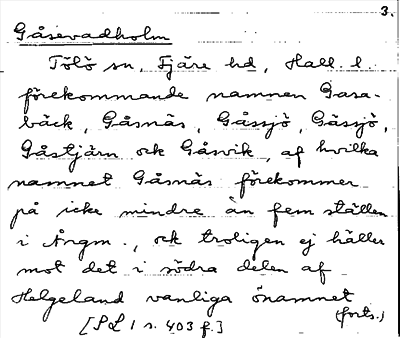 3.
Gåsevadholm
Tölö sn, Fjäre hd, Hall. l.
förekommande namnen Gasa-
bäck, Gåsnäs, Gåssjö, Gässjö,
Gåstjärn ock Gåsvik, af hvilka
namnet Gåsnäs förekommer
på icke mindre än fem ställen
i Ångm., ock troligen ej häller
mot det i södra delen af
Helgeland vanliga önamnet
(forts.)
[SL 1 s. 403 f.]